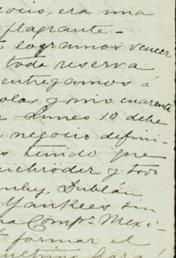 ocio, era una
flagrante.-
logramos vencer
toda reserva
entregamos á
olas y mio cuarenta
Lunes 10 debe
negocio difini-
tenido que
chroder y todo
Dublán
Yankees sin
a Compª Mexi-
formar el